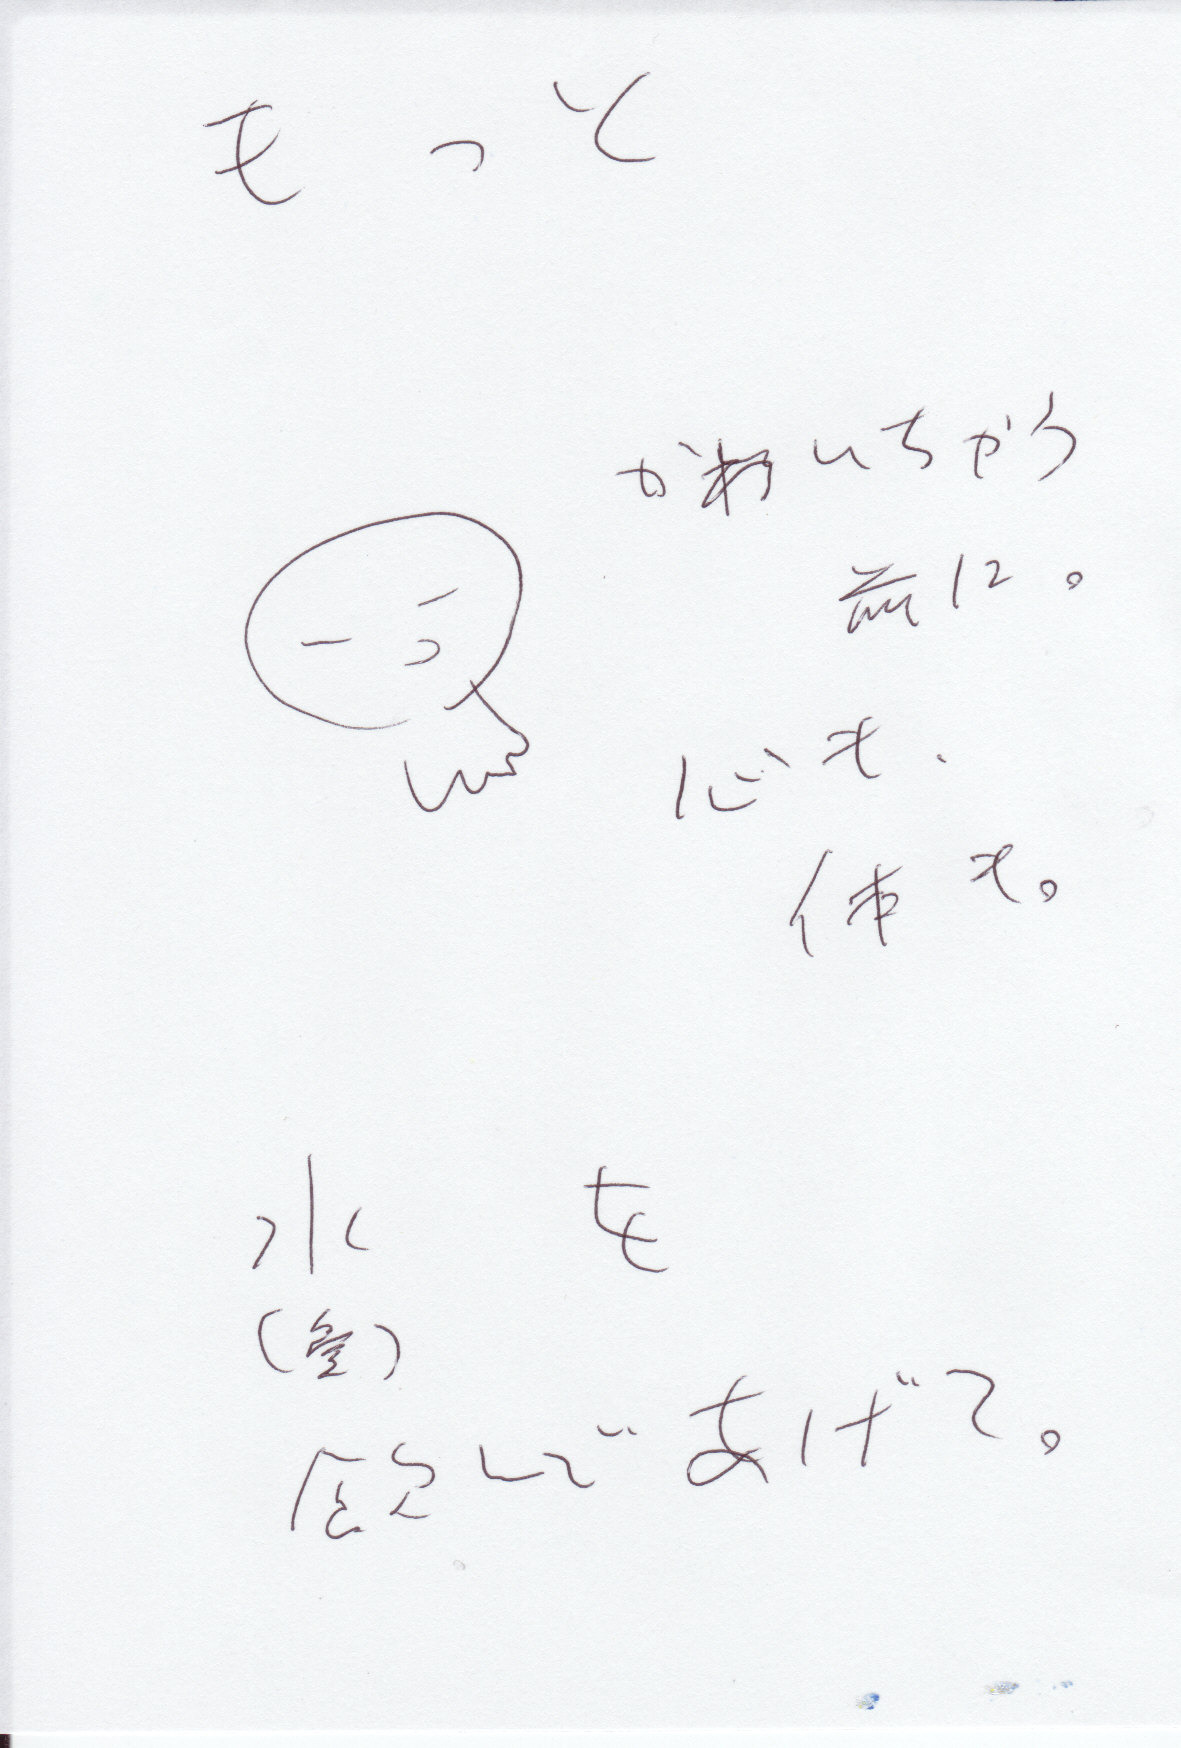 もっと
かわいちから
前に。
心も、
体も。
水を
(量)
飲んであげて。